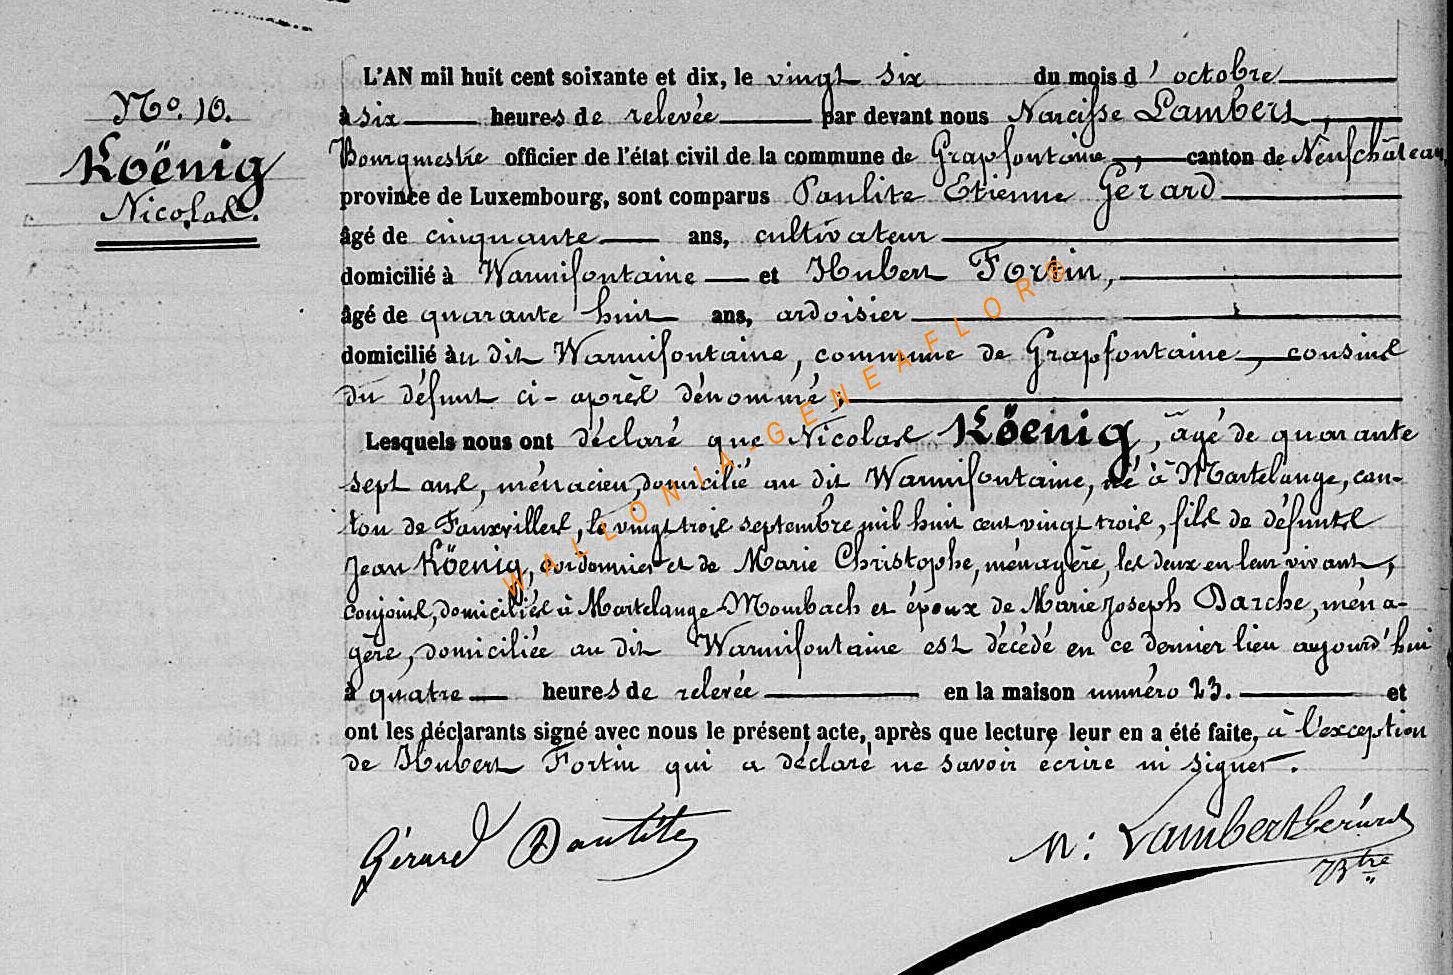 No. 10.
Koënig
Nicolas.
L'AN mil huit cent soixante et dix, le vingt six du mois d'octobre
à six heures de relevée par devant nous Narcisse Lambert,
Bourgmestre officier de l'état civil de la commune de Grapfontaine, canton de Neufchâteau,
province de Luxembourg, sont comparus Paulite Etienne Gérard
âgé de cinquante ans, cultivateur
domicilié à Warmifontaine et Hubert Fortin,
âgé de quarante huit ans, ardoisier
domicilié au dit Warmifontaine, commune de Grapfontaine, cousins
du défunt ci-après dénommé;
Lesquels nous ont déclaré que Nicolas Köenig, âgé de quarante
sept ans, domicilié au dit Warmifontaine, né à Martelange, can-
ton de Fauvillers, le vingt trois septembre mil huit cent vingt trois, fils de défunts
Jean Köenig, cordonnier et de Marie Christophe, ménagère, les deux en leur vivant,
conjoints, domiciliés à Martelange Rombach et époux de Marie Joseph Darche, ména-
gère, domiciliée au dit Warmifontaine est décédé en ce dernier lieu aujourd'hui
à quatre heures de relevée en la maison numéro 23. et
ont les déclarants signé avec nous le présent acte, après que lecture leur en a été faite, à l'exception
de Hubert Fortin qui a déclaré ne savoir écrire ni signer.
Gérard Paulite
N: Lambert Gérard
Btre
WALLONIA-GENEAFLORE